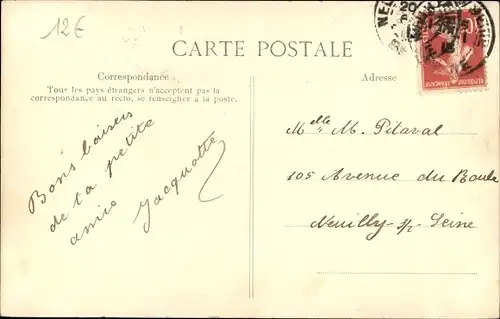 12€
CARTE POSTALE
Correspondance
Tous les pays étrangers n'acceptent pas la
correspondance au recto, se renseigner à la poste.
Bons baisers
de ta petite
amie
Jacquotte
Adresse
Melle M. Pitaval
105 Avenue du Roule
Neuilly s/ Seine